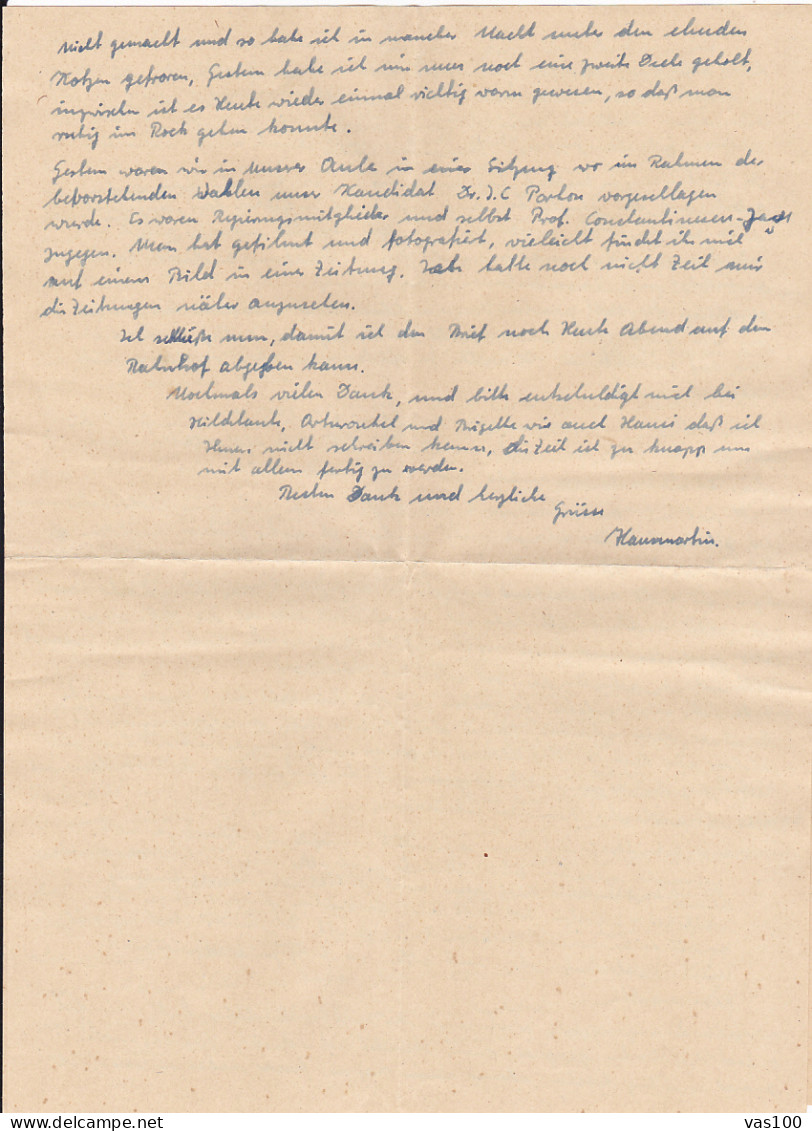 nicht gemacht und so habe ich in mancher Nacht unter den elenden
Kotzen gefroren, Gestern habe ich mir nun noch eine zweite Decke geholt,
inzwischen ist es Heute wieder einmal richtig warm gewesen, so daß man
ruhig im Rock gehen konnte.
Gestern waren wir in unserer Aula in einer Sitzung wo im Rahmen der
bevorstehenden Wahlen unser Kandidat Dr. I.C Parhon vorgeschlagen
wurde. Es waren Regierungsmitglieder und selbst Prof. Constantinescu-Jassi
zugegen. Man hat gefilmt und fotografiert, vieleicht findet ihr mich
auf einem Bild in einer Zeitung. Ich hatte noch nicht Zeit mir
die Zeitungen näher anzusehen.
Ich schließe nun, damit ich den Brief noch Heute Abend auf den
Bahnhof abgeben kann.
Nochmals vielen Dank, und bitte entschuldigt mich bei
und Brigitte wie auch Hansi daß ich
Ihnen nicht schreiben kann, die Zeit ist zu knapp um
mit allem fertig zu werden.
Besten Dank und herzliche
Grüsse
Hansmartin.
vas100